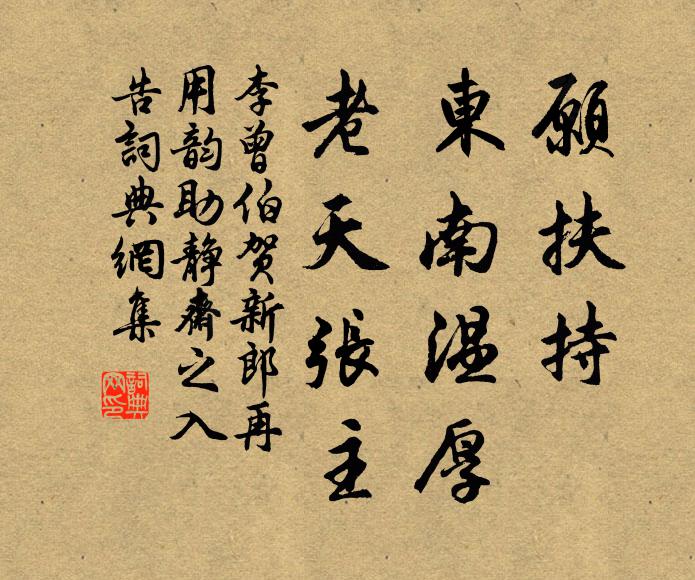 願扶持
東南溫厚
老天張主
李曾伯賀新郎再
用韵助靜齋之入
告詞典網集
詞典網印